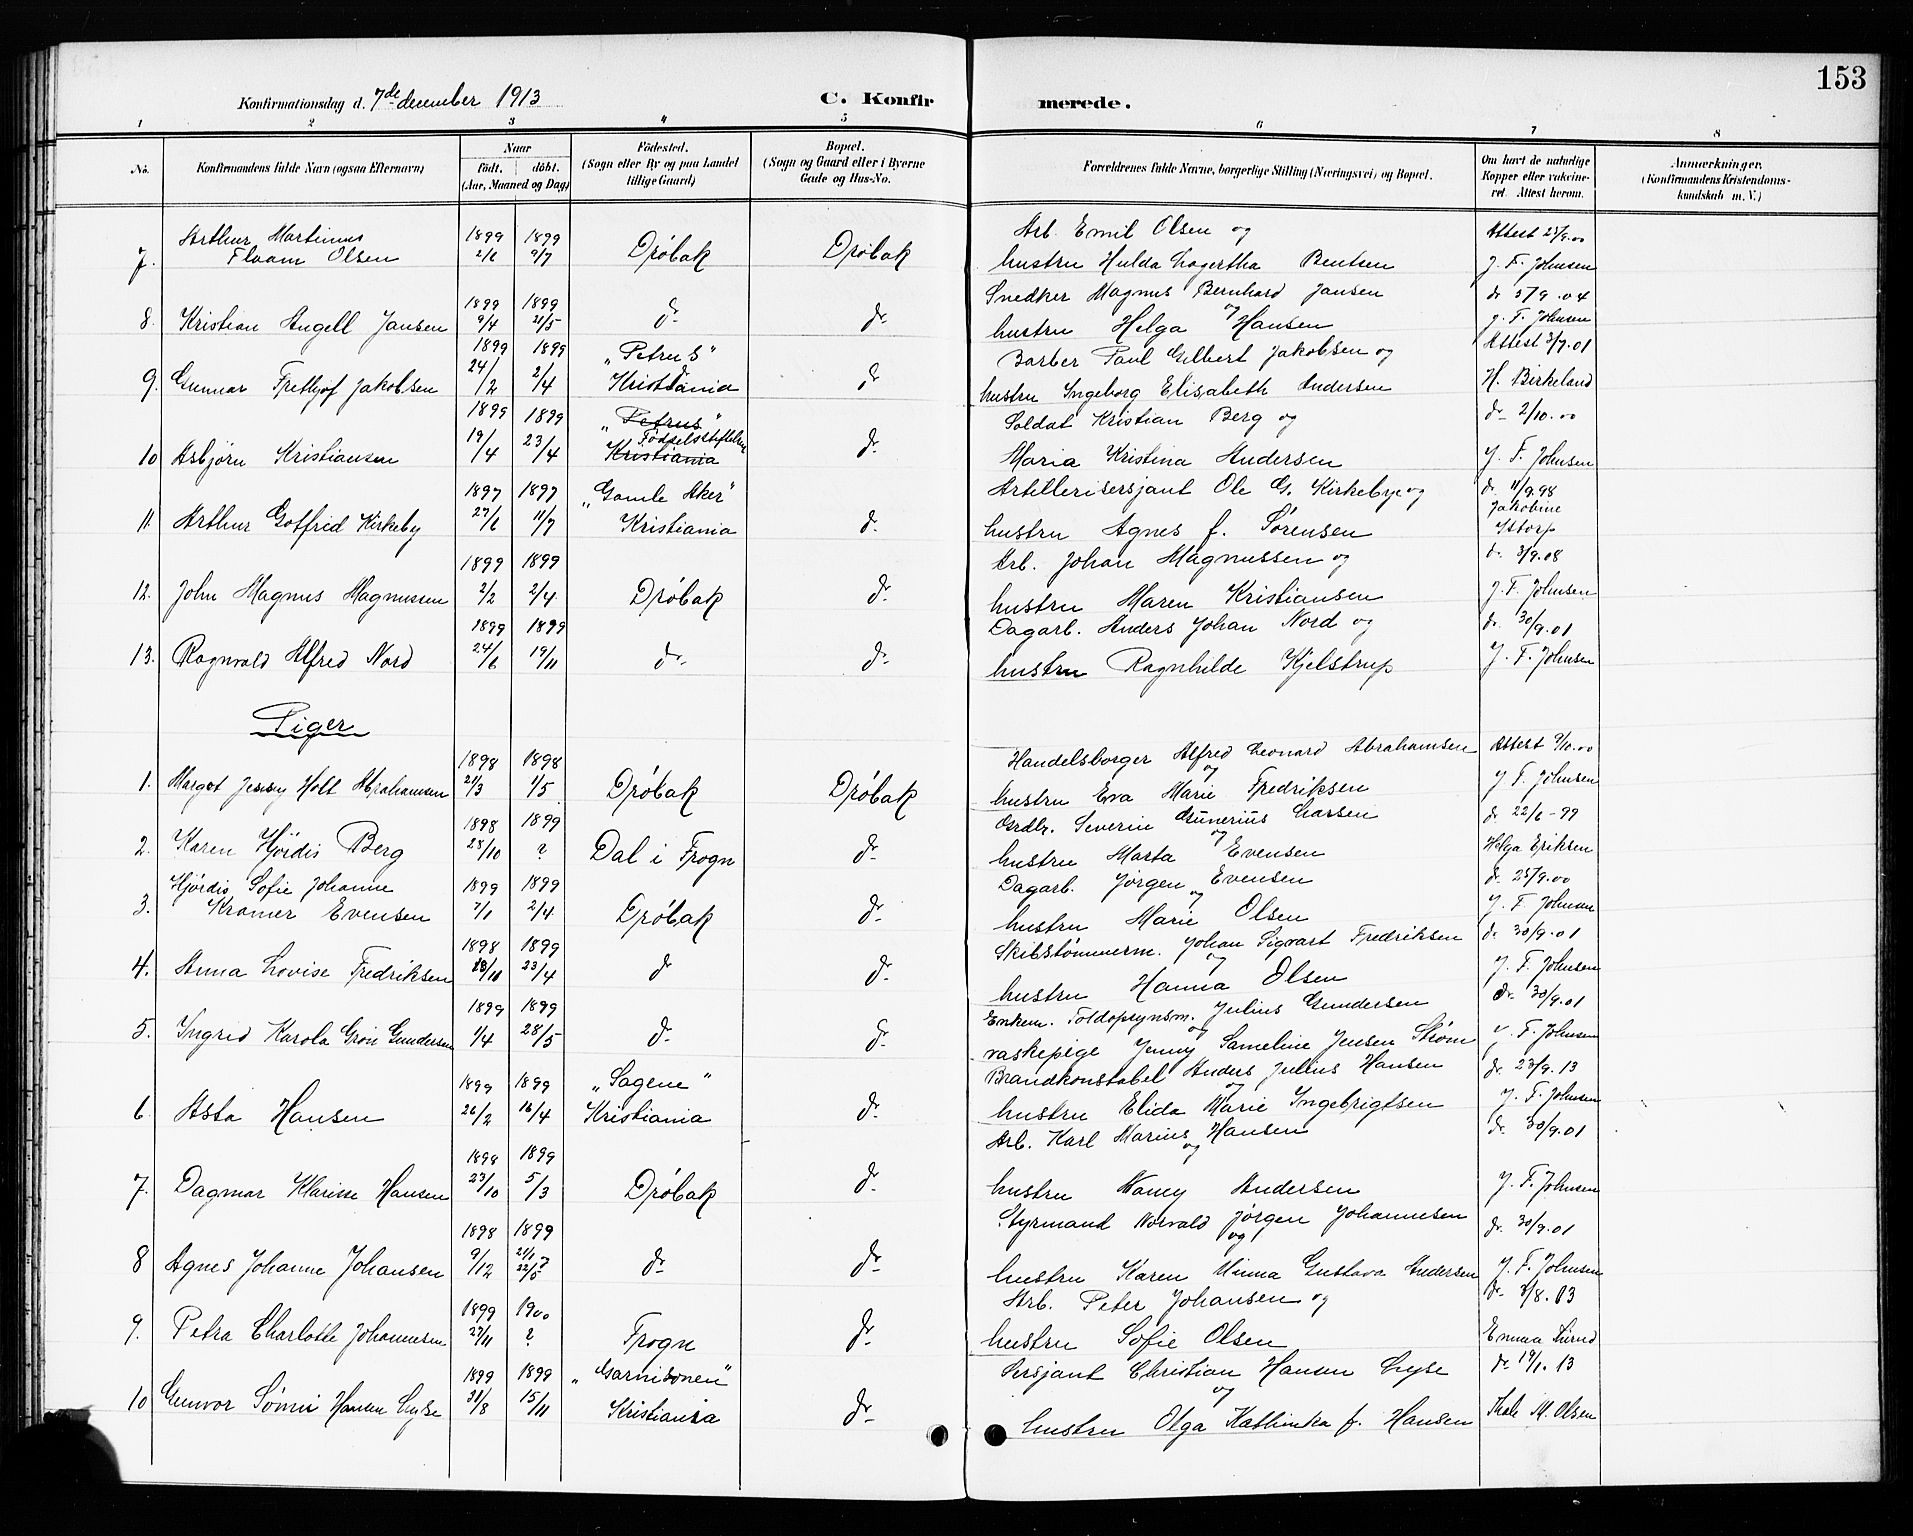 153
Konfirmationsdag d. 7de december 1913
C. Konfir merede.
1 2 3 4 5 6 7 8
No. Konfirmandens fulde Navn (ogsaa Efternavn) Naar Födested. Bopæl. Forældrenes fulde Navne, borgerlige Stilling (Næringsvei) og Bopæl. Om havt de naturlige Anmærkninger.
födt. döbt. (Sogn eller By og paa Landet (Sogn og Gaard eller i Byerne Kopper eller vakcine- (Konfirmandens Kristendoms-
(Aar, Maaned og Dag) tillige Gaard) Gade og Hus-No. ret. Attest herom. kundskab m. V.)
Arthur Martinus 1899 1899 Arb. Emil Olsen og Attest 25/9.00
7. Flaam Olsen 2/6 9/7 Dröbak Dröbak hustru Hulda Lagertha Bentsen J. F. Johnsen
1899 1899 Snedker Magnus Bernhard Jansen og do 5/9.04
8. Kristian Angell Jansen 9/4 21/5 do do hustru Helga Hansen J. F. Johnsen
1899 1899 "Petrus" Barber Paul Gilbert Jakobsen og Attest 3/9.01
9. Gunnar Frithjof Jakobsen 24/2 2/4 Kristiania do hustru Ingeborg Elisabeth Andersen H. Birkeland
1899 1899 "Petrus" Soldat Kristian Berg og do 2/10.00
10 Asbjørn Kristiansen 19/4 23/4 Fødselsstiftelsen Kristiania do Maria Kristina Andersen J. F. Johnsen
1897 1897 "Gamle Aker" Artillerisersjant Ole G. Kirkebye og do 11/9.98
11. Arthur Gotfred Kirkeby 27/6 11/7 Kristiania do hustru Agnes f. Sörensen Jakobine Ystorp
1899 1899 Arb. Johan Magnussen og do 3/9.08
12. John Magnus Magnussen 2/2 2/4 Dröbak do hustru Maren Kristiansen J. F. Johnsen
1899 1899 Dagarb. Anders Johan Nord og do 30/9.01
13. Ragnvald Alfred Nord 24/6 19/11 do do hustru Ragnhilde Kjelstrup J. F. Johnsen
Piger
1898 1898 Handelsborger Alfred Leonard Abrahamsen og Attest 2/10.00
1. Margot Jenny Holt Abrahamsen 21/3 1/5 Dröbak Dröbak hustru Eva Marie Fredriksen J. F. Johnsen
1898 1899 Grdbr. Severin Gunerius Larsen og do 22/6-99
2. Karen Hjördis Berg 28/10 ? Dal i Frogn do hustru Marta Evensen Helga Eriksen
Hjördis Sofie Johanne 1899 1899 Dagarb. Jörgen Evensen og do 25/9.00
3. Kramer Evensen 7/1 2/4 Dröbak do hustru Marie Olsen J. F. Johnsen
1898 1899 Skibstömmerm. Johan Sigvart Fredriksen og do 30/9.01
4. Anna Lovise Fredriksen 23/4 do do hustru Hanna Olsen J. F. Johnsen
1899 1899 Enkem. Toldopsynsm. Julius Gundersen og do 30/9.01
5. Ingrid Karola Grön Gundersen 1/4 28/5 do do vaskepige Jenny Sameline Jensen Ström J. F. Johnsen
1899 1899 "Sagene" Brandkonstabel Anders Julius Hansen og do 23/9.13
6 Asta Hansen 26/2 16/4 Kristiania do hustru Elida Marie Ingebrigtsen J. F. Johnsen
1898 1899 Arb. Karl Marius Hansen og do 30/9.01
7. Dagmar Klarisse Hansen 23/10 5/3 Dröbak do hustru Nancy Andersen J. F. Johnsen
1898 1899 Styrmand Norvald Jörgen Johannesen og do 30/9.01
8 Agnes Johanne Johansen 9/12 21/1 ? 22/5 do do hustru Karen Minna Gustava Andersen J. F. Johnsen
1899 1900 Arb. Peter Johansen og do 3/8.03
9. Petra Charlotte Johannesen 27/11 ? Frogn do hustru Sofie Olsen Emma
1899 1899 "Garnisonen" Sersjant Christian Hansen Lyse og do 19/1.13
10 Gunvor Hansen Lyse 31/8 15/11 Kristiania do hustru Olga Kathinka f. Hansen M. Olsen